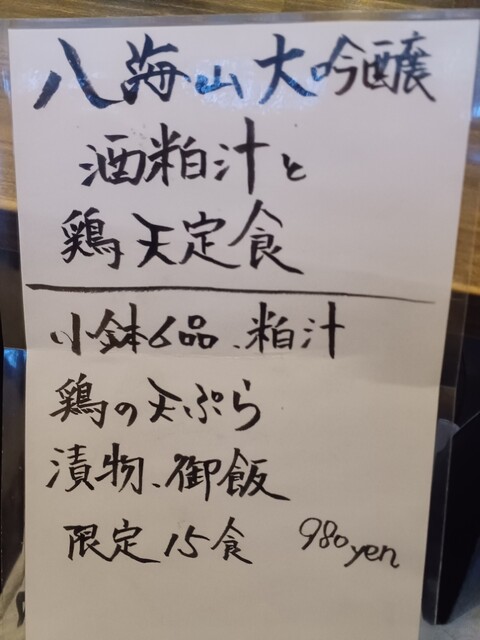 八海山大吟醸
酒粕汁と
鶏天定食
小鉢6品、粕汁
鶏の天ぷら
漬物、御飯
限定15食 980yen